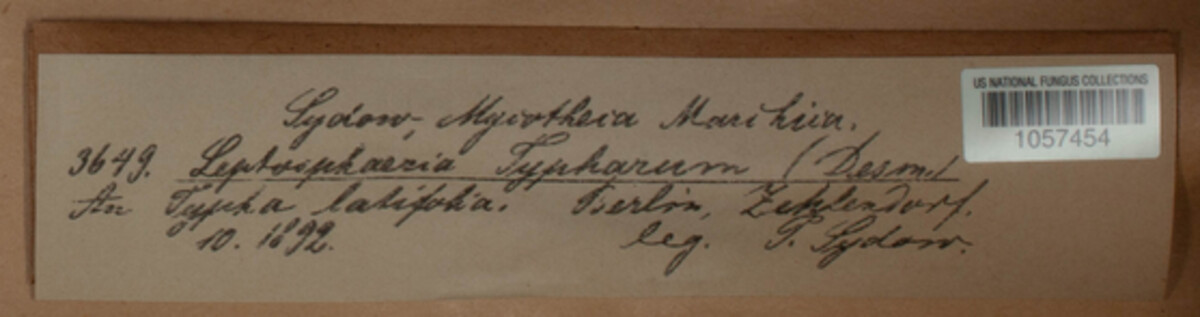 US NATIONAL FUNGUS COLLECTIONS
1057454
Sydow, Mycotheca Marchica.
3649. Leptosphaeria Typharum (Desm.)
An Typha latifolia. Berlin, Zehlendorf.
10. 1892. leg. P. Sydow.